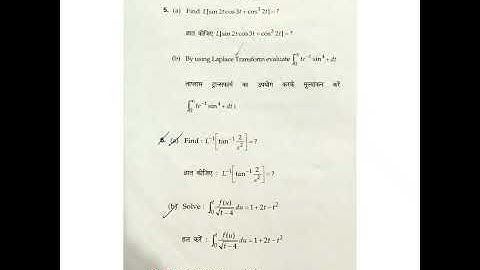 5. (a) Find L[sin 2t cos 3t + cos³ 2t] = ?
ज्ञात कीजिए L[sin 2t cos 3t + cos³ 2t] = ?
(b) By using Laplace Transform evaluate ∫₀^∞ te⁻ᵗ sin⁴ t dt
लाप्लास ट्रान्सफार्म का उपयोग करके मूल्यांकन करें
∫₀^∞ te⁻ᵗ sin⁴ t dt
6. (a) Find : L⁻¹[tan⁻¹ 2/s²] = ?
ज्ञात कीजिए : L⁻¹[tan⁻¹ 2/s²] = ?
(b) Solve : ∫₀ᵗ f(u)/√t−4 du = 1 + 2t − t²
हल करें : ∫₀ᵗ f(u)/√t−4 du = 1 + 2t − t²